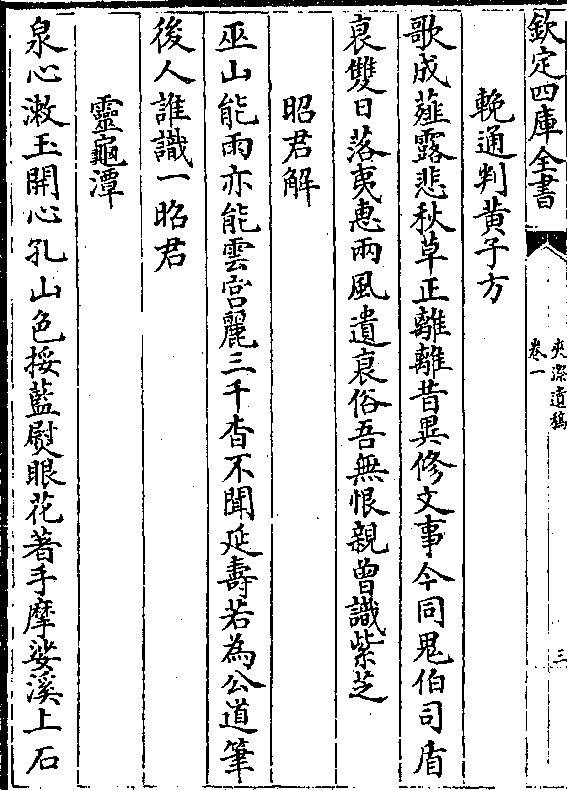 欽定四庫全書
夾漈遺稿
卷一
三
輓通判黃子方
歌成薤露悲秋草正離離昔異修文事今同鬼伯司盾
衰雙日落夷惠兩風遺衰俗吾無恨親曾識紫芝
昭君解
巫山能雨亦能雲宮麗三千杳不聞延壽若為公道筆
後人誰識一昭君
靈龜潭
泉心漱玉開心孔山色挼藍熨眼花著手摩娑溪上石